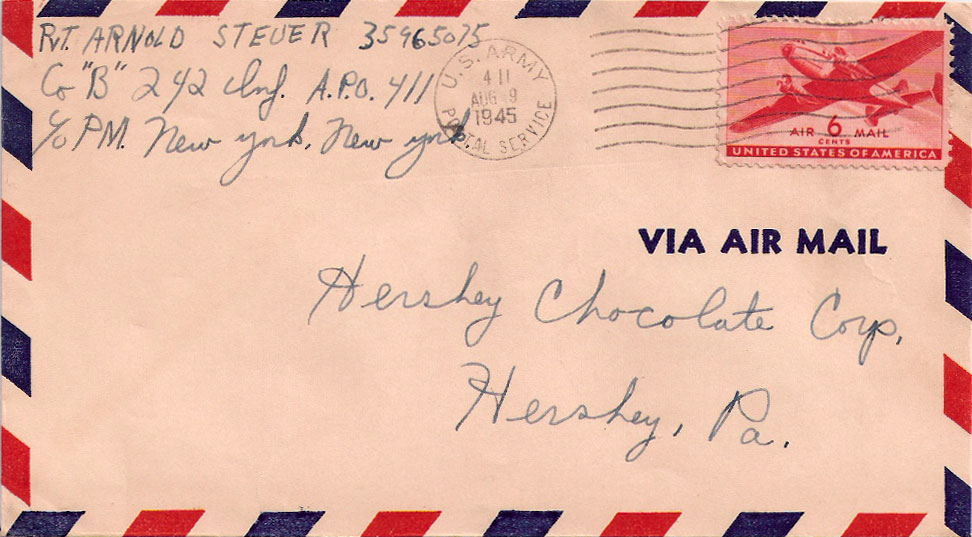 Pvt. ARNOLD STEUER 35965075
Co "B" 242 Inf. A.P.O. 411
c/o PM. New york, New york
U.S. ARMY
4 11
AUG 9
1945
POSTAL SERVICE
AIR 6 MAIL
CENTS
UNITED STATES OF AMERICA
VIA AIR MAIL
Hershey Chocolate Corp.
Hershey, Pa.